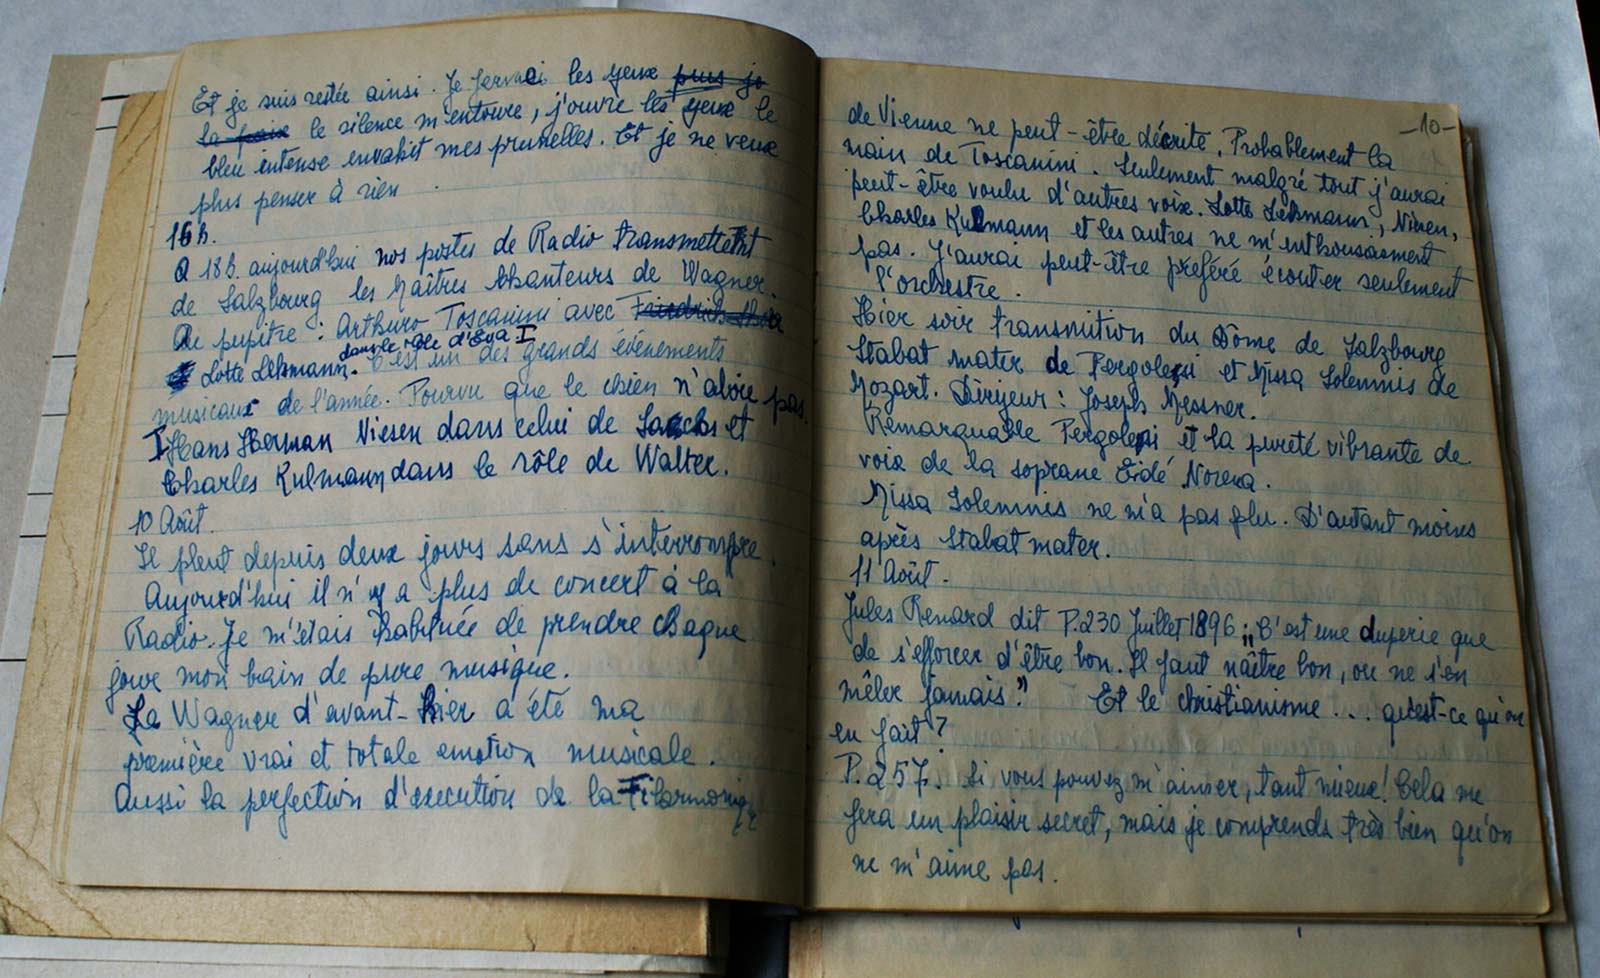 Et je suis restée ainsi. Je fermai les yeux puis je
la paix le silence m'entoure, j'ouvre les yeux le
bleu intense envahit mes prunelles. Et je ne veux
plus penser à rien.
16h.
A 18h. aujourd'hui nos postes de Radio transmettent
de Salzbourg les Maîtres Chanteurs de Wagner.
Au pupitre : Arthuro Toscanini avec Friedrich
dans le rôle d'Eva I
Lotte Lehmann. C'est un des grands événements
musicaux de l'année. Pourvu que le chien n'aboie pas.
I Hans Herman Nissen dans celui de Sachs et
Charles Kulmann dans le rôle de Walter.
10 Août.
Il pleut depuis deux jours sans s'interrompre.
Aujourd'hui il n'y a plus de concert à la
Radio. Je m'étais habituée de prendre chaque
jour mon bain de pure musique.
Le Wagner d'avant-hier a été ma
première vrai et totale emotion musicale.
Aussi la perfection d'execution de la Filarmonique
-10-
de Vienne ne peut-être décrite. Probablement la
main de Toscanini. Seulement malgré tout j'aurai
peut-être voulu d'autres voix. Lotte Lehmann, Nissen,
Charles Kulmann et les autres ne m'enthousasment
pas. J'aurai peut-être preféré écouter seulement
l'orchestre.
Hier soir transmition du Dôme de Salzbourg
Stabat mater de Pergolesi et Missa Solemnis de
Mozart. Dirijeur : Joseph Messner.
Remarquable Pergolesi et la pureté vibrante de
voix de la soprane Eidé Norena.
Missa Solemnis ne m'a pas plu. D'autant moins
après Stabat mater.
11 Août.
Jules Renard dit P.230 Juillet 1896 „C'est une duperie que
de s'efforcer d'être bon. Il faut naître bon, ou ne s'en
mêler jamais." Et le christianisme... qu'est-ce qu'on
en fait?
P.257. Si vous pouvez m'aimer, tant mieux! Cela me
fera un plaisir secret, mais je comprends très bien qu'on
ne m'aime pas.